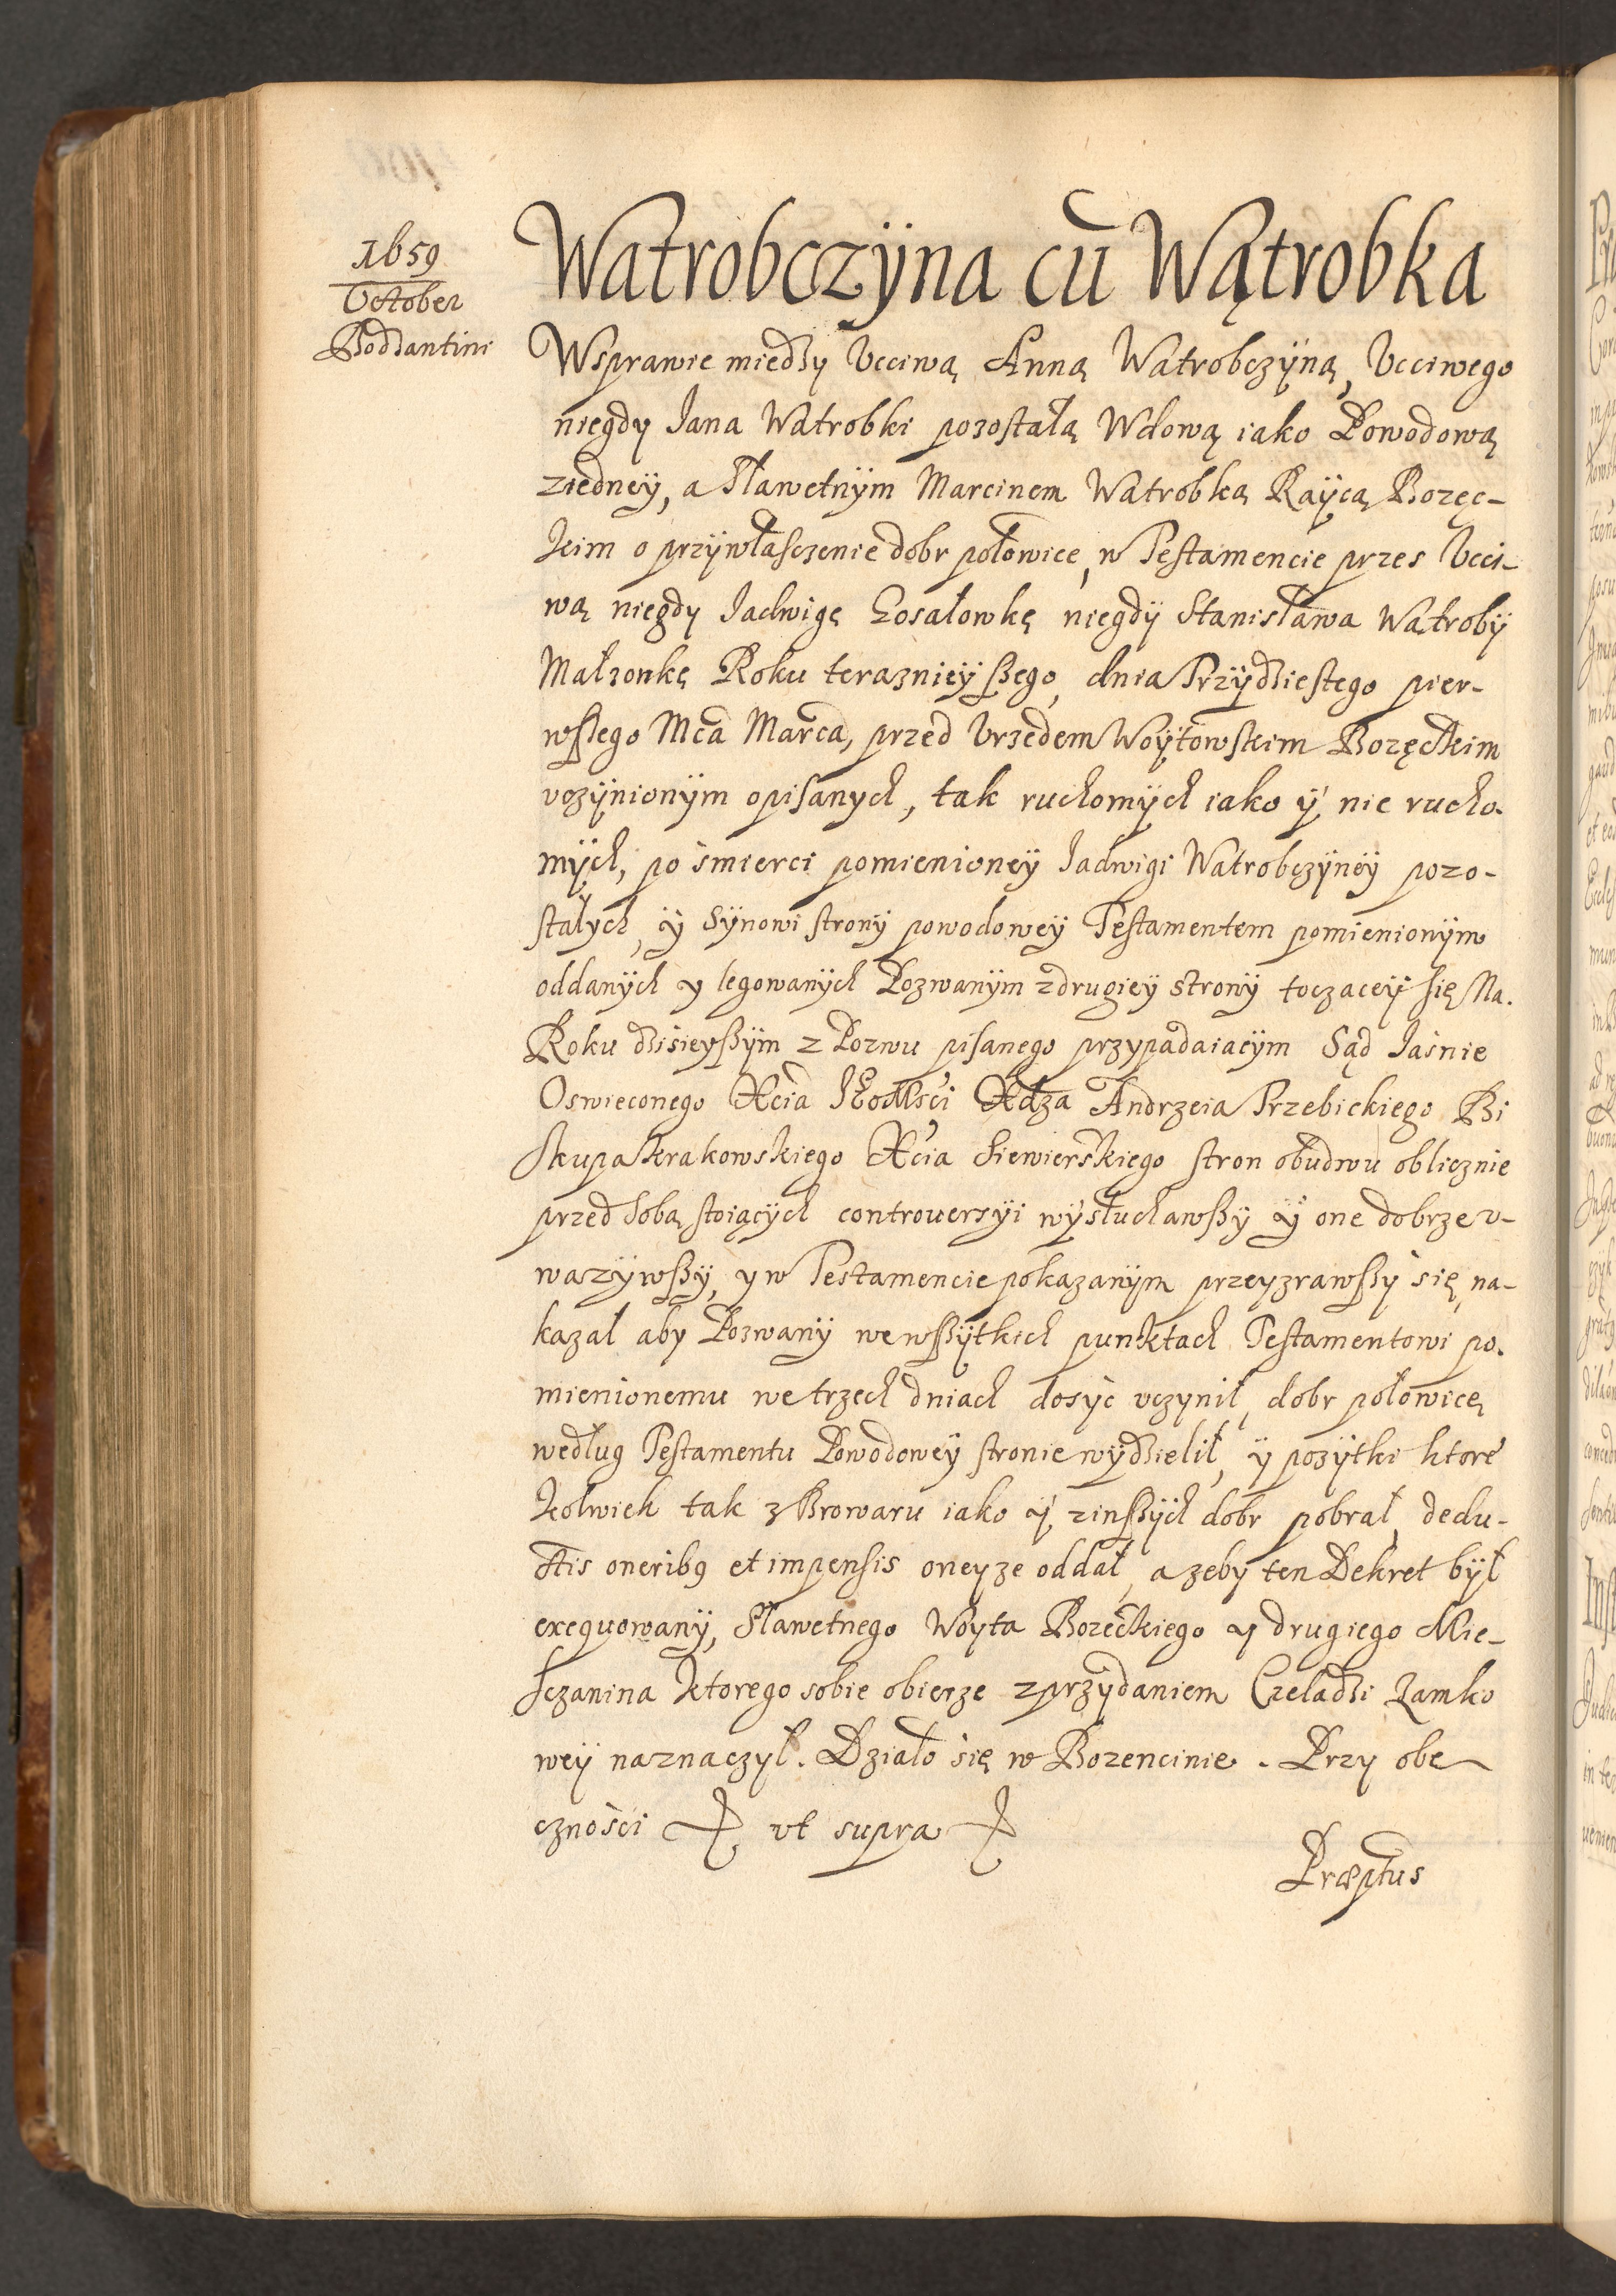 1659
October
Bodzantini
Watrobczÿna cū Wątrobka
Wsprawie miedzy Vcciwą Anną Watrobczÿną, Vcciwego
niegdy Jana Watrobki pozostałą Wdową iako Powodową
ziedneÿ, a Sławetnÿm Marcinem Watrobką Raÿcą Bozęc-
kim o przÿwłasczenie dobr połowice, w Testamencie przes Vcci-
wą niegdy Jadwigę Zosałowkę niegdÿ Stanisława Wątrobÿ
Małzonkę Roku teraznieÿßego, dnia Trzÿdziestego pier-
wszego Mca Marca, przed Vrzedem Woÿtowskim Bozęckim
vczÿnionÿm opisanych, tak ruchomÿch iako ÿ nie rucho-
mÿch, po śmierci pomienioneÿ Jadwigi Watrobczÿneÿ pozo-
stałych, ÿ Sÿnowi stronÿ powodoweÿ Testamentem pomienionÿm
oddanÿch y legowanÿch Pozwanÿm zdrugieÿ stronÿ toczaceÿ się Na.
Roku dzisieyßÿm z Pozwu pisanego przypadaiacÿm Sąd Jaśnie
Oswieconego Xcia JEoMści Xdza Andrzeia Trzebickiego Bi
skupa Krakowskiego Xcia Siewierskiego stron obudwu oblicznie
przed sobą stoiącÿch controuersyi wÿsłuchawßÿ ÿ one dobrze v-
wazÿwßÿ, y w Testamencie pokazanÿm przeyzrawßÿ się, na-
kazał aby Pozwanÿ we wßÿtkich punktach Testamentowi po-
mienionemu we trzech dniach dosÿc vczynił, dobr połowicę
według Testamentu Powodoweÿ stronie wÿdzielił, ÿ pozÿtki ktore
kolwiek tak z Browaru iako ÿ zinßÿch dobr pobrał, dedu-
ctis oneribq et impensis oneyze oddał, a zeby ten Dekret bÿł
exequowanÿ, Sławetnego Woyta Bozeckiego y drugiego Mie-
sczanina ktorego sobie obierze z przÿdaniem Czeladzi Zamko
weÿ naznaczył. Działo się w Bozencinie. Przy obe
czności vt supra
Præptus